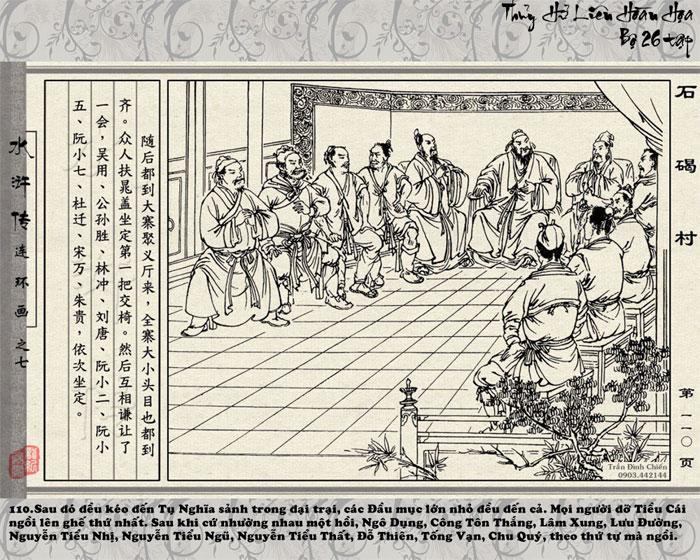 Thủy Hử Liên Hoàn Họa
Bộ 26 tập
石碣村
第一一〇页
随后都到大寨聚义厅来，全寨大小头目也都到
齐。众人扶晁盖坐定第一把交椅。然后互相谦让了
一会，吴用、公孙胜、林冲、刘唐、阮小二、阮小
五、阮小七、杜迁、宋万、朱贵，依次坐定。
水浒传连环画之七
Trần Đình Chiến
0903.442144
110.Sau đó đều kéo đến Tụ Nghĩa sảnh trong đại trại, các Đầu mục lớn nhỏ đều đến cả. Mọi người dỡ Tiều Cái
ngồi lên ghế thứ nhất. Sau khi cứ nhường nhau một hồi, Ngô Dụng, Công Tôn Thắng, Lâm Xung, Lưu Đường,
Nguyễn Tiểu Nhị, Nguyễn Tiểu Ngũ, Nguyễn Tiểu Thất, Đỗ Thiên, Tống Vạn, Chu Quý, theo thứ tự mà ngồi.